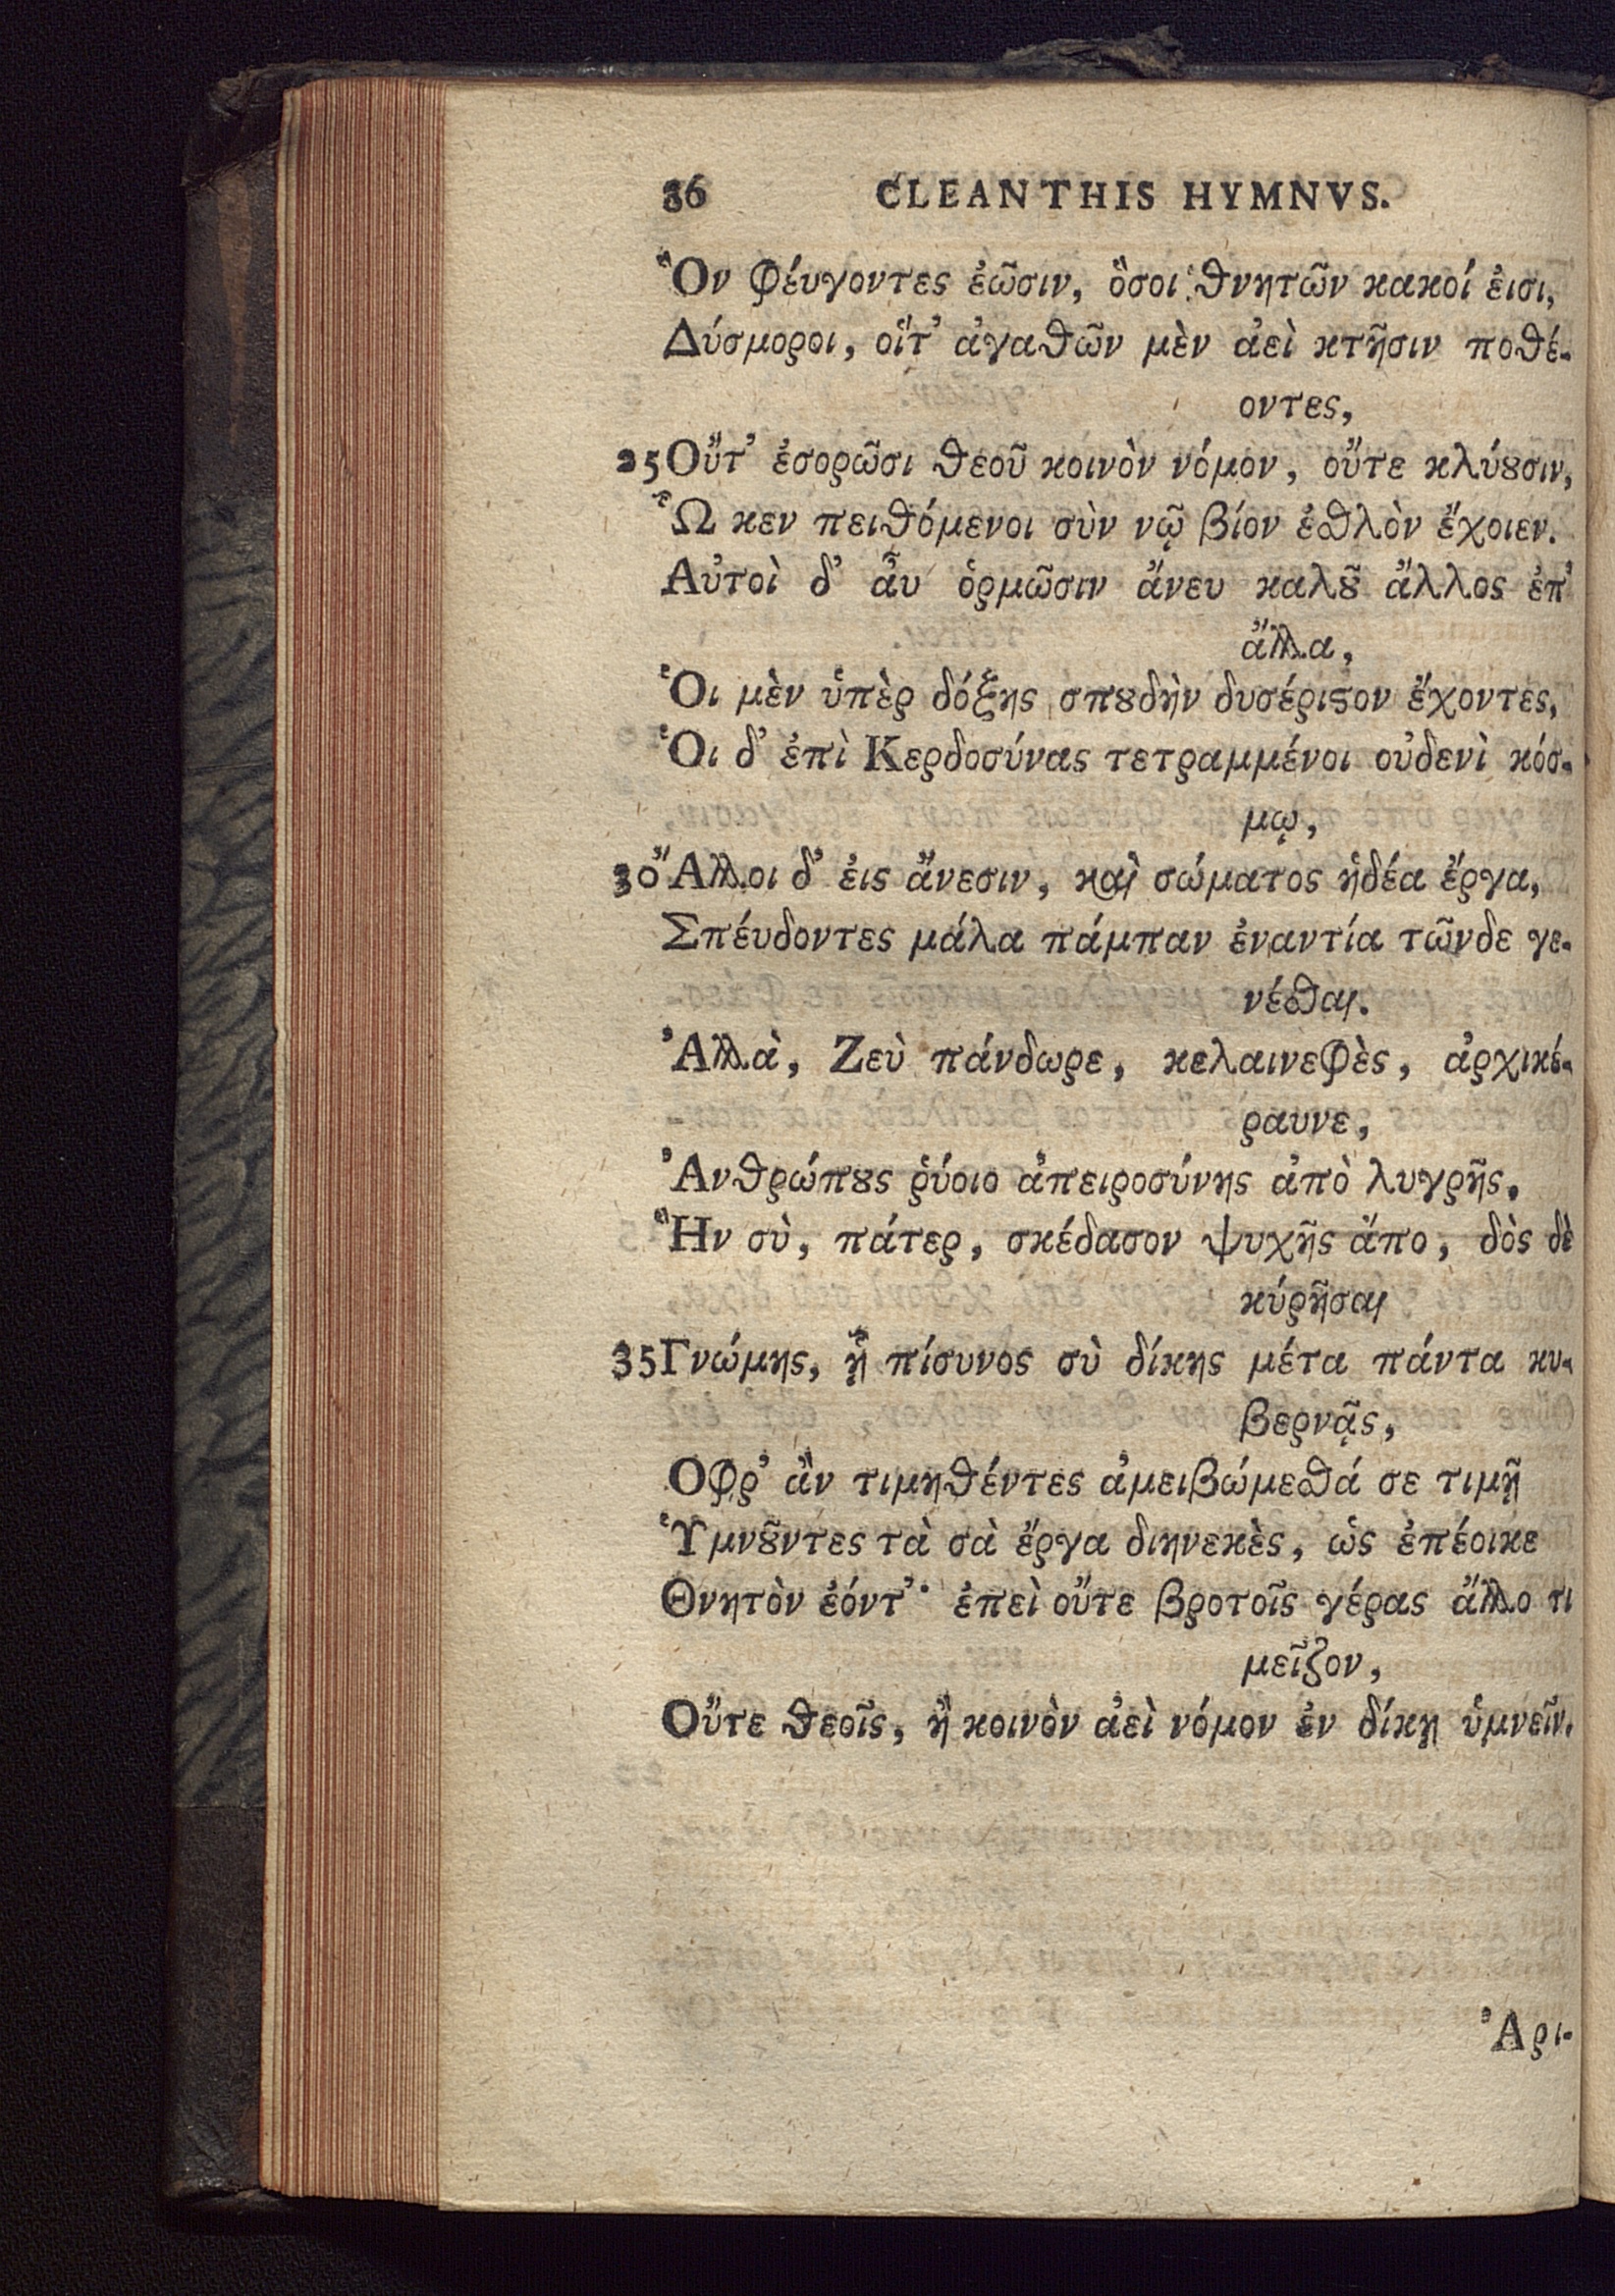 86 CLEANTHIS HYMNVS.
Ὃν φέυγοντες ἐῶσιν, ὅσοι θνητῶν κακοί ἐισι,
Δύσμοροι, οἵτ' ἀγαθῶν μὲν ἀεὶ κτῆσιν ποθέ-
οντες,
25 Οὔτ' ἐσορῶσι θεοῦ κοινὸν νόμον, οὔτε κλύȣσιν,
Ὧ κεν πειθόμενοι σὺν νῷ βίον ἐσθλὸν ἔχοιεν.
Αὐτοὶ δ' ἆυ ὁρμῶσιν ἄνευ καλȣ͂ ἄλλος ἐπ'
ἄλλα,
Ὁι μὲν ὑπὲρ δόξης σπȣδὴν δυσέριϛον ἔχοντες,
Ὁι δ' ἐπὶ Κερδοσύνας τετραμμένοι οὐδενὶ κόσ-
μῳ,
30 Ἄλλοι δ' ἐις ἄνεσιν, καὶ σώματος ἡδέα ἔργα,
Σπέυδοντες μάλα πάμπαν ἐναντία τῶνδε γε-
νέσθαι.
Ἀλλὰ, Ζεὺ πάνδωρε, κελαινεφὲς, ἀρχικέ-
ραυνε,
Ἀνθρώπȣς ῥύοιο ἀπειροσύνης ἀπὸ λυγρῆς.
Ἣν σὺ, πάτερ, σκέδασον ψυχῆς ἄπο, δὸς δὲ
κύρῆσαι
35 Γνώμης, ᾗ πίσυνος σὺ δίκης μέτα πάντα κυ-
βερνᾷς,
Οφρ' ἂν τιμηθέντες ἀμειβώμεσθά σε τιμῇ
Ὑμνȣ͂ντες τὰ σὰ ἔργα διηνεκὲς, ὡς ἐπέοικε
Θνητὸν ἐόντ'· ἐπεὶ οὔτε βροτοῖς γέρας ἄλλο τι
μεῖζον,
Οὔτε θεοῖς, ἢ κοινὸν ἀεὶ νόμον ἐν δίκῃ ὑμνεῖν.
Ἀρι-